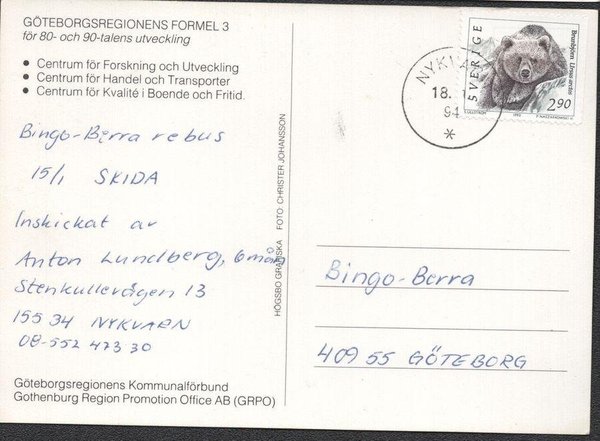 GÖTEBORGSREGIONENS FORMEL 3
för 80- och 90-talens utveckling
• Centrum för Forskning och Utveckling
• Centrum för Handel och Transporter
• Centrum för Kvalité i Boende och Fritid.
Bingo-Berra rebus
15/1 SKIDA
Inskickat av
Anton Lundberg, 6 mån
Stenkullevägen 13
155 34 NYKVARN
08-552 473 30
Göteborgsregionens Kommunalförbund
Gothenburg Region Promotion Office AB (GRPO)
HÖGSBO GRAFISKA FOTO: CHRISTER JOHANSSON
18.
94
SVERIGE
Brunbjörn Ursus arctos
2.90
Bingo-Berra
409 55 GÖTEBORG